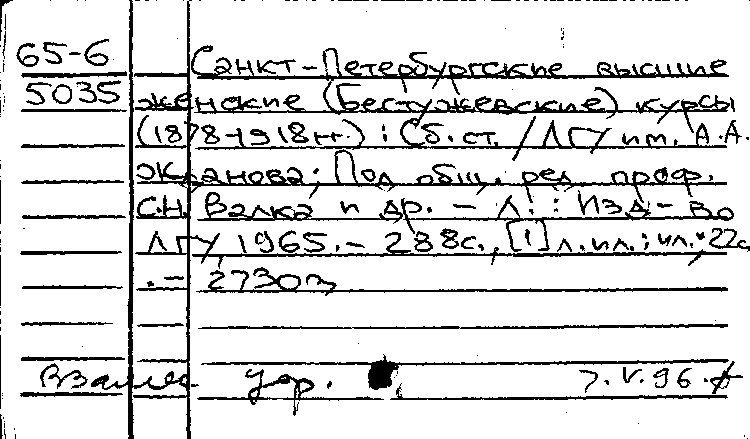 65-6 Санкт-Петербургские высшие
5035 женские (Бестужевские) курсы
(1878-1918гг.) : Сб.ст. / ЛГУ им. А.А.
Жданова; Под общ. ред. проф.
С.Н. Валка и др. – Л. : Изд-во
ЛГУ, 1965. – 288с., [1] л. ил. : ил.; 22с
. – 2730э
Взамен утр. 7.V.96.